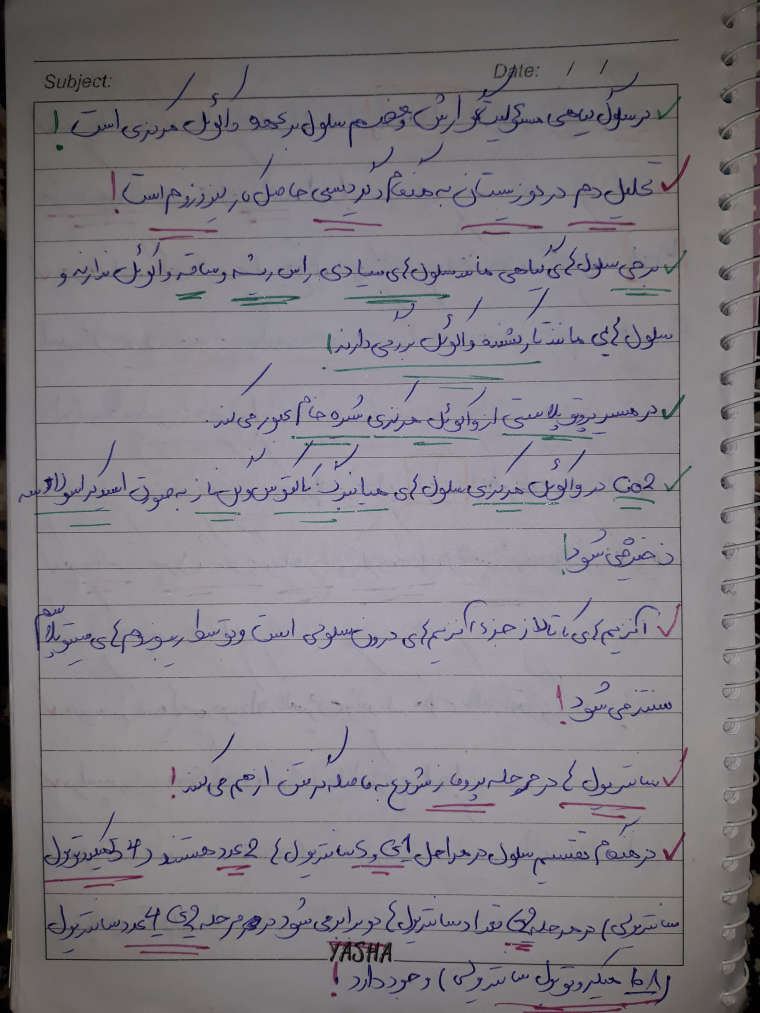 Subject:
Date: / /
در سلول گیاهی مسئولیت گوارش و هضم سلول بر عهده واکوئل مرکزی است !
تحلیل دم در دوزیستان به هنگام دگردیسی حاصل کار لیزوزوم است !
برخی سلول های گیاهی مانند سلول های بنیادی راس ریشه و ساقه واکوئل ندارند و
سلول هایی مانند تار کشنده واکوئل بزرگی دارند !
در مسیر پروتوپلاستی از واکوئل مرکزی شیره خام عبور می کند.
CO2 در واکوئل مرکزی سلول های میانبرگ کاکتوس و گل ناز به صورت اسید کراسولاسه
ذخیره می شود !
آنزیم های کاتالاز جزء آنزیم های درون سلولی است و توسط ریبوزوم های سیتوپلاسم
سنتز می شود !
سانتریول ها در مرحله پروفاز شروع به فاصله گرفتن از هم می کنند !
در هنگام تقسیم سلول در مراحل G1 و S سانتریول ها 2 عدد هستند (54 میکروتوبول
سانتریولی) در مرحله G2 تعداد سانتریول ها دو برابر می شود در مرحله G2 4 عدد سانتریول
YASHA
(108 میکروتوبول سانتریولی) وجود دارد !